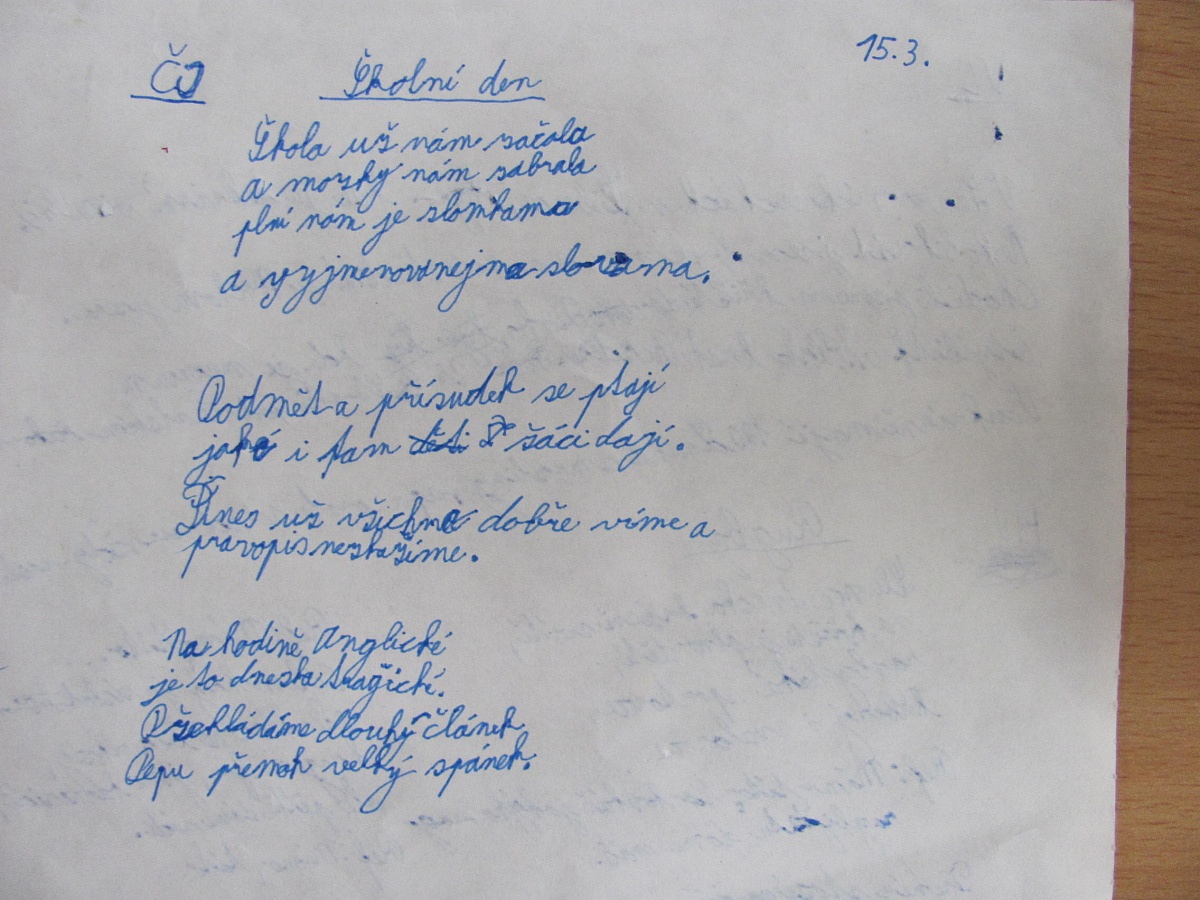 ČJ Školní den 15.3.
Škola už nám začala
a mozky nám sabrala
plní nám je sloukama
a vyjmenovanejma slovama.
Podmět a přísudek se ptají
jaké i tam žáci dají.
Dnes už všichne dobře víme a
pravopis neskazíme.
Na hodině Anglické
je to dneska tragické.
Překládáme dlouhý článek
Pepu přemoh velký spánek.